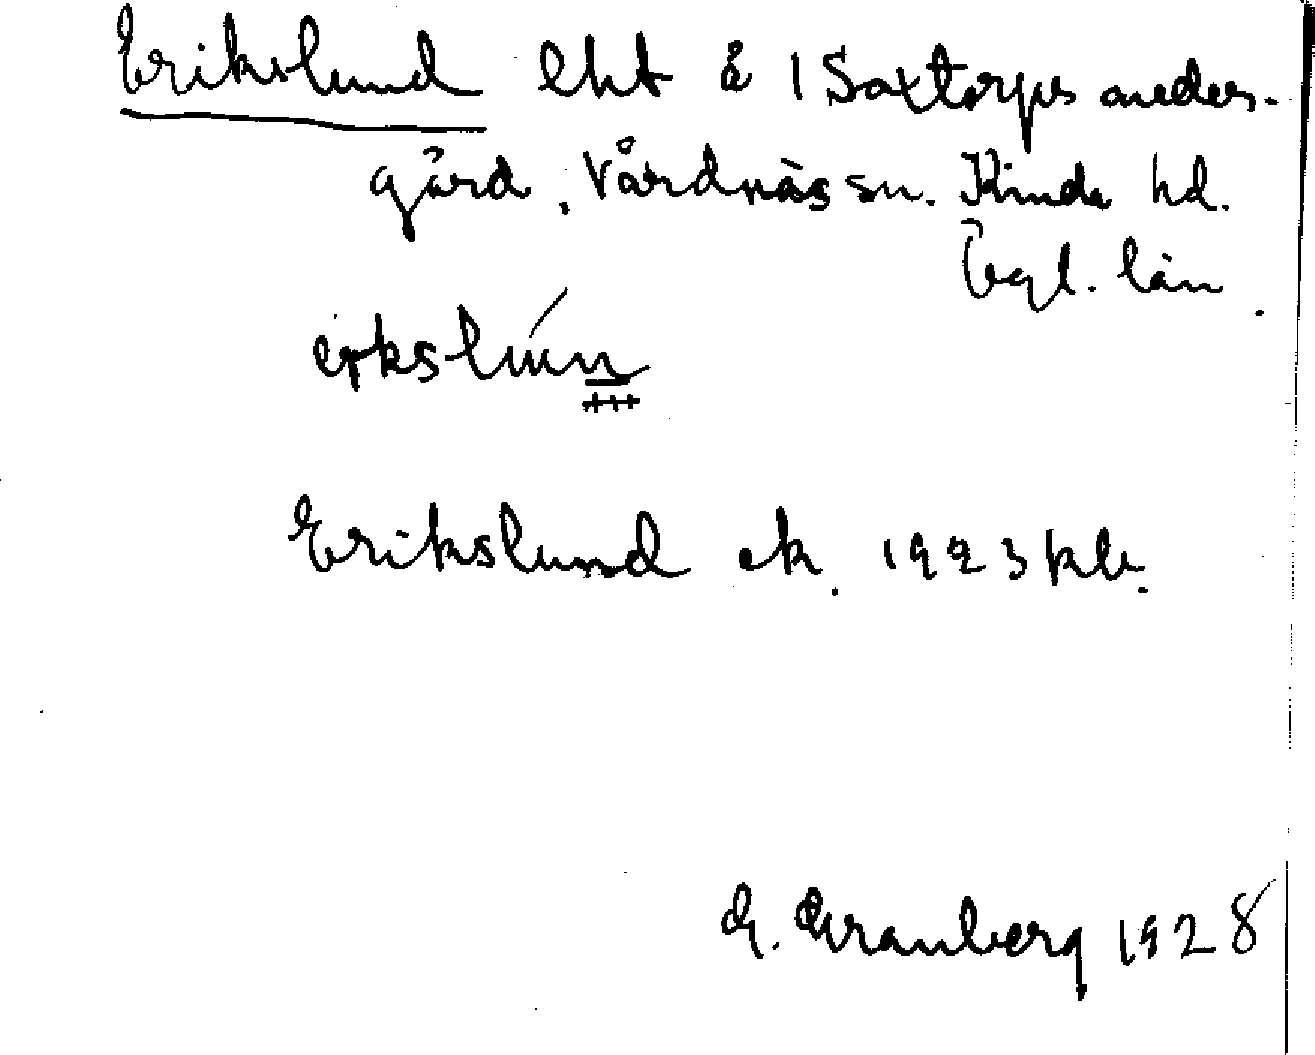 Erikslund lht å 1 Saxtorps neder-
gård, Vårdnäs sn. Kinda hd.
Ögl. län
Erikslund ek. 1923 kb.
G. Granberg 1928